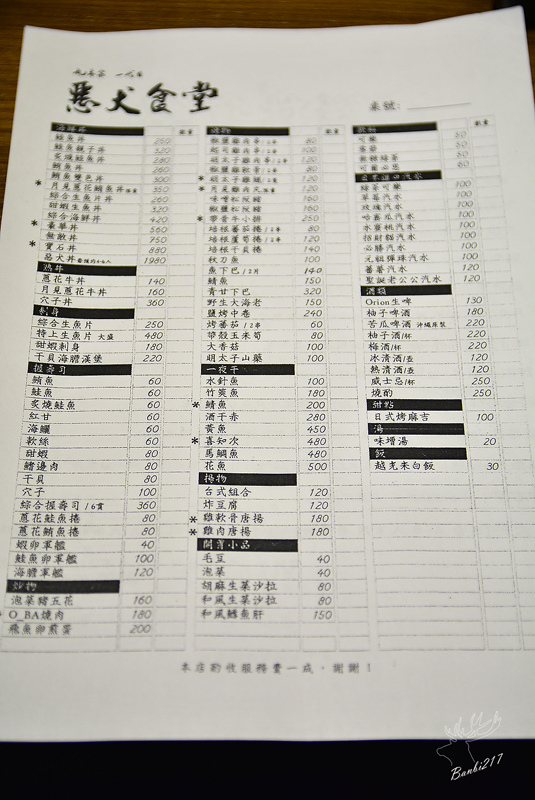 惡犬食堂
桌號:
海鮮丼 數量
鮭魚丼 250
鮭魚親子丼 320
炙燒鮭魚丼 280
鮪魚丼 260
鮪魚雙色丼 300
* 月見蔥花鮪魚丼 350
綜合生魚片丼 260
甜蝦生魚丼 320
綜合海鮮丼 420
* 豪華丼 560
無敵丼 750
* 寶石丼 880
惡犬丼 1980
鸡丼
蔥花牛丼 140
月見蔥花牛丼 160
穴子丼 360
刺身
綜合生魚片 250
特上生魚片 大盛 480
甜蝦刺身 180
干貝海膽漢堡 220
握壽司
鮪魚 60
鮭魚 60
炙燒鮭魚 60
紅甘 60
海鱺 60
軟絲 60
甜蝦 80
鰭邊肉 80
干貝 80
穴子 100
綜合握壽司/6貫 360
蔥花鮭魚捲 80
蔥花鮪魚捲 80
蝦卵軍艦 40
鮭魚卵軍艦 100
海膽軍艦 120
炒物
泡菜豬五花 160
O_BA燒肉 180
飛魚卵煎蛋 200
燒物 數量
椒鹽雞肉串/2串 80
起司雞肉串/2串 100
明太子雞肉串/2串 120
* 明太子雞翅/2串 120
* 月見雞肉丸 120
味噌松阪豬 160
椒鹽松阪豬 160
* 帶骨牛小排 250
培根蕃茄捲/2串 80
培根蘆筍捲/2串 120
培根干貝捲 140
秋刀魚 100
魚下巴/2片 140
鯖魚 150
青甘下巴 320
野生大海老 150
鹽烤中卷 240
烤蕃茄/2串 60
帶殼玉米筍 80
大香菇 100
明太子山藥 100
一夜干
水針魚 100
竹筴魚 180
* 鯖魚 200
酒干赤 280
黃魚 450
* 喜知次 480
馬鯛魚 480
花魚 500
揚物
台式組合 120
炸豆腐 120
* 雞軟骨唐揚 180
* 雞肉唐揚 180
開胃小品
毛豆 40
泡菜 40
胡麻生菜沙拉 80
和風生菜沙拉 80
和風鱈魚肝 150
飲料 數量
可樂 50
雪碧 50
無糖綠茶 60
可爾必思 60
日本進口汽水
綠茶可樂 100
草莓汽水 100
玫瑰汽水 100
哈蜜瓜汽水 100
水蜜桃汽水 100
招財貓汽水 100
必勝汽水 100
元祖彈珠汽水 100
蕃薯汽水 120
聖誕老公公汽水 120
酒類
Orion生啤 130
柚子啤酒 180
苦瓜啤酒 沖繩原裝 220
柚子酒/杯 150
梅酒/杯 150
冰清酒/壺 120
熱清酒/壺 120
威士忌/杯 250
燒酌 250
甜點
日式烤麻吉 100
湯
味增湯 20
飯
越光米白飯 30
本店酌收服務費一成，謝謝！
Banbi217